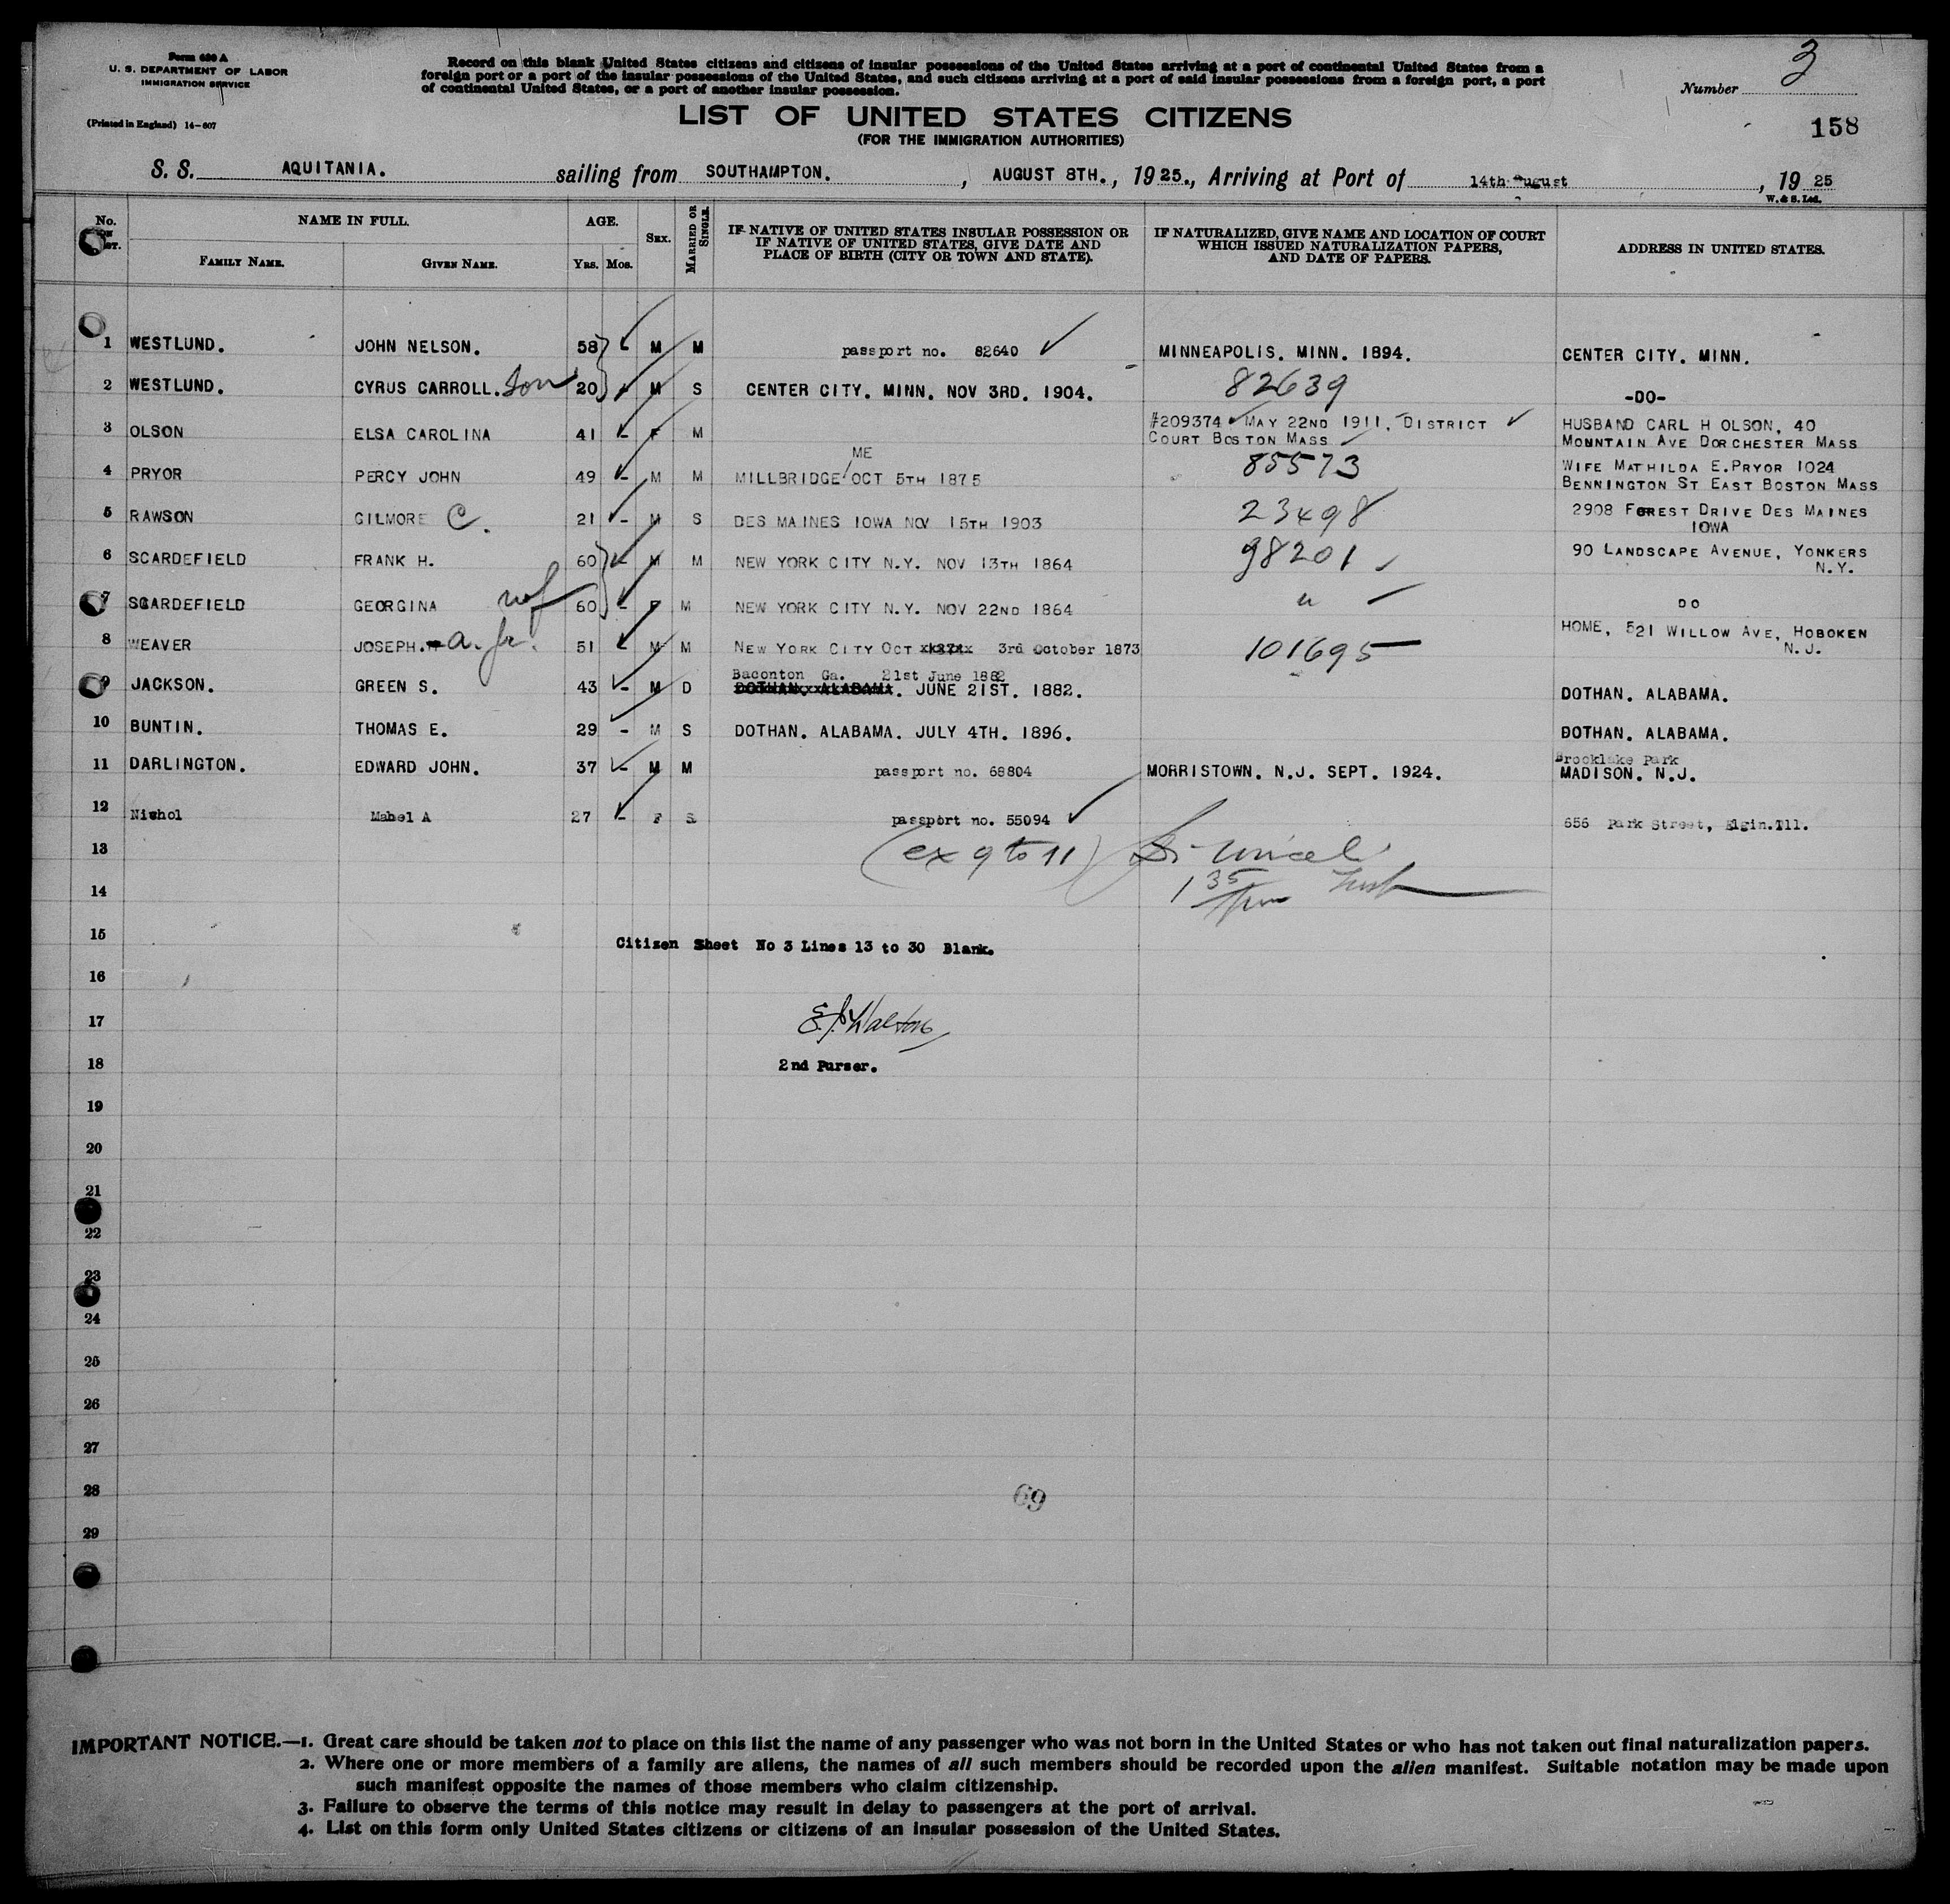 Form 630 A
U. S. DEPARTMENT OF LABOR
IMMIGRATION SERVICE
(Printed in England) 14-607
Record on this blank United States citizens and citizens of insular possessions of the United States arriving at a port of continental United States from a
foreign port or a port of the insular possessions of the United States, and such citizens arriving at a port of said insular possessions from a foreign port, a port
of continental United States, or a port of another insular possession.
Number 3
158
LIST OF UNITED STATES CITIZENS
(FOR THE IMMIGRATION AUTHORITIES)
S. S. AQUITANIA. sailing from SOUTHAMPTON. , AUGUST 8TH., 1925., Arriving at Port of 14th August , 19 25
W. & S. Ltd.
No. ON LIST. NAME IN FULL. AGE. SEX. MARRIED OR SINGLE. IF NATIVE OF UNITED STATES INSULAR POSSESSION OR IF NATIVE OF UNITED STATES, GIVE DATE AND PLACE OF BIRTH (CITY OR TOWN AND STATE). IF NATURALIZED, GIVE NAME AND LOCATION OF COURT WHICH ISSUED NATURALIZATION PAPERS, AND DATE OF PAPERS. ADDRESS IN UNITED STATES.
FAMILY NAME. GIVEN NAME. YRS. MOS.
1 WESTLUND. JOHN NELSON. 58 - M M passport no. 82640 ✓ MINNEAPOLIS. MINN. 1894. CENTER CITY. MINN.
2 WESTLUND. CYRUS CARROLL. son 20 M S CENTER CITY. MINN. NOV 3RD. 1904. 82639 -DO-
3 OLSON ELSA CAROLINA 41 - F M #209374 MAY 22ND 1911, DISTRICT COURT BOSTON MASS HUSBAND CARL H OLSON, 40 MOUNTAIN AVE DORCHESTER MASS
4 PRYOR PERCY JOHN 49 - M M MILLBRIDGE/ME OCT 5TH 1875 85573 WIFE MATHILDA E.PRYOR 1024 BENNINGTON ST EAST BOSTON MASS
5 RAWSON GILMORE C. 21 - M S DES MAINES IOWA NOV 15TH 1903 23498 2908 FOREST DRIVE DES MAINES IOWA
6 SCARDEFIELD FRANK H. 60 M M NEW YORK CITY N.Y. NOV 13TH 1864 98201 90 LANDSCAPE AVENUE, YONKERS N.Y.
7 SCARDEFIELD GEORGINA wf 60 - F M NEW YORK CITY N.Y. NOV 22ND 1864 " DO
8 WEAVER JOSEPH. a. jr. 51 M M NEW YORK CITY OCT 3rd October 1873 101695 HOME, 521 WILLOW AVE, HOBOKEN N.J.
9 JACKSON. GREEN S. 43 - M D Baconton Ga. 21st June 1882 DOTHAN. ALABAMA. JUNE 21ST. 1882. DOTHAN. ALABAMA.
10 BUNTIN. THOMAS E. 29 - M S DOTHAN. ALABAMA. JULY 4TH. 1896. DOTHAN. ALABAMA.
11 DARLINGTON. EDWARD JOHN. 37 - M M passport no. 68804 MORRISTOWN. N.J. SEPT. 1924. Brooklake Park MADISON. N.J.
12 Nichol Mabel A 27 - F S passport no. 55094 ✓ 656 Park Street, Elgin.Ill.
13 (ex 9 to 11)
14 1 35
15 Citizen Sheet No 3 Lines 13 to 30 Blank.
16
17 E.J. Walton
18 2nd Purser.
19
20
21
22
23
24
25
26
27
28 69
29
IMPORTANT NOTICE.—1. Great care should be taken not to place on this list the name of any passenger who was not born in the United States or who has not taken out final naturalization papers.
2. Where one or more members of a family are aliens, the names of all such members should be recorded upon the alien manifest. Suitable notation may be made upon
such manifest opposite the names of those members who claim citizenship.
3. Failure to observe the terms of this notice may result in delay to passengers at the port of arrival.
4. List on this form only United States citizens or citizens of an insular possession of the United States.